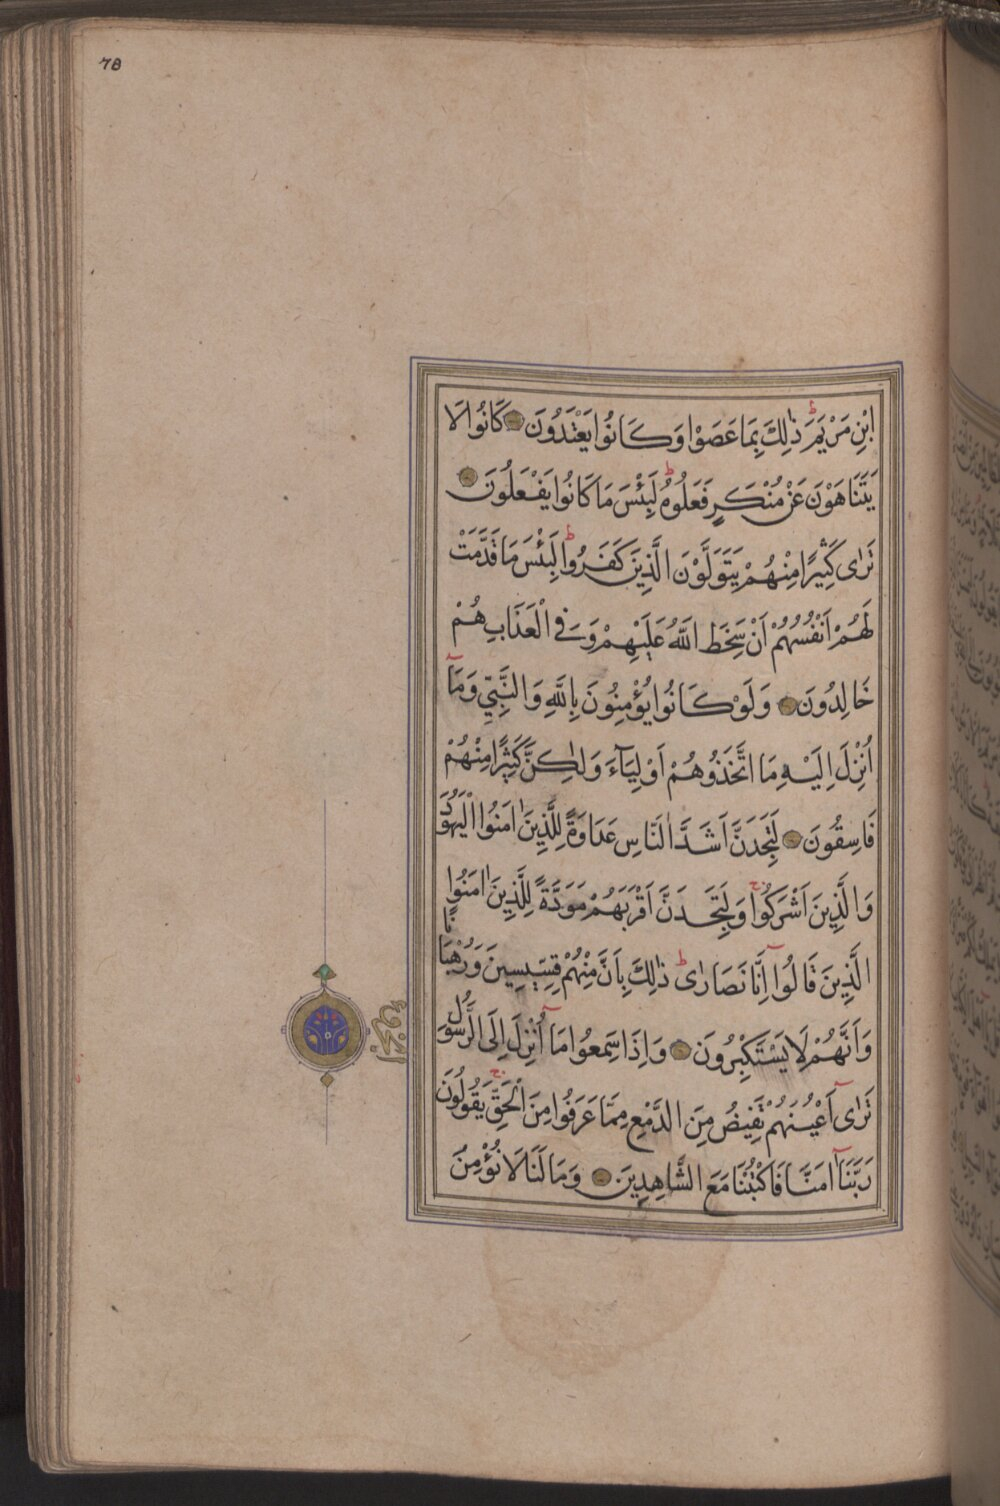 78
ابْنِ مَرْيَمَ ذٰلِكَ بِمَا عَصَوْا وَكَانُوا يَعْتَدُونَ كَانُوا لَا
يَتَنَاهَوْنَ عَنْ مُنْكَرٍ فَعَلُوهُ لَبِئْسَ مَا كَانُوا يَفْعَلُونَ
تَرٰى كَثِيرًا مِنْهُمْ يَتَوَلَّوْنَ الَّذِينَ كَفَرُوا لَبِئْسَ مَا قَدَّمَتْ
لَهُمْ اَنْفُسُهُمْ اَنْ سَخِطَ اللهُ عَلَيْهِمْ وَفِي الْعَذَابِ هُمْ
خَالِدُونَ وَلَوْ كَانُوا يُؤْمِنُونَ بِاللهِ وَالنَّبِيِّ وَمَآ
اُنْزِلَ اِلَيْهِ مَا اتَّخَذُوهُمْ اَوْلِيَآءَ وَلٰكِنَّ كَثِيرًا مِنْهُمْ
فَاسِقُونَ لَتَجِدَنَّ اَشَدَّ النَّاسِ عَدَاوَةً لِلَّذِينَ اٰمَنُوا الْيَهُودَ
وَالَّذِينَ اَشْرَكُوا وَلَتَجِدَنَّ اَقْرَبَهُمْ مَوَدَّةً لِلَّذِينَ اٰمَنُوا
الَّذِينَ قَالُوٓا اِنَّا نَصَارٰى ذٰلِكَ بِاَنَّ مِنْهُمْ قِسِّيسِينَ وَرُهْبَانًا
وَاَنَّهُمْ لَا يَسْتَكْبِرُونَ وَاِذَا سَمِعُوا مَآ اُنْزِلَ اِلَى الرَّسُولِ
تَرٰىٓ اَعْيُنَهُمْ تَفِيضُ مِنَ الدَّمْعِ مِمَّا عَرَفُوا مِنَ الْحَقِّ يَقُولُونَ
رَبَّنَآ اٰمَنَّا فَاكْتُبْنَا مَعَ الشَّاهِدِينَ وَمَا لَنَا لَا نُؤْمِنُ
الجزو